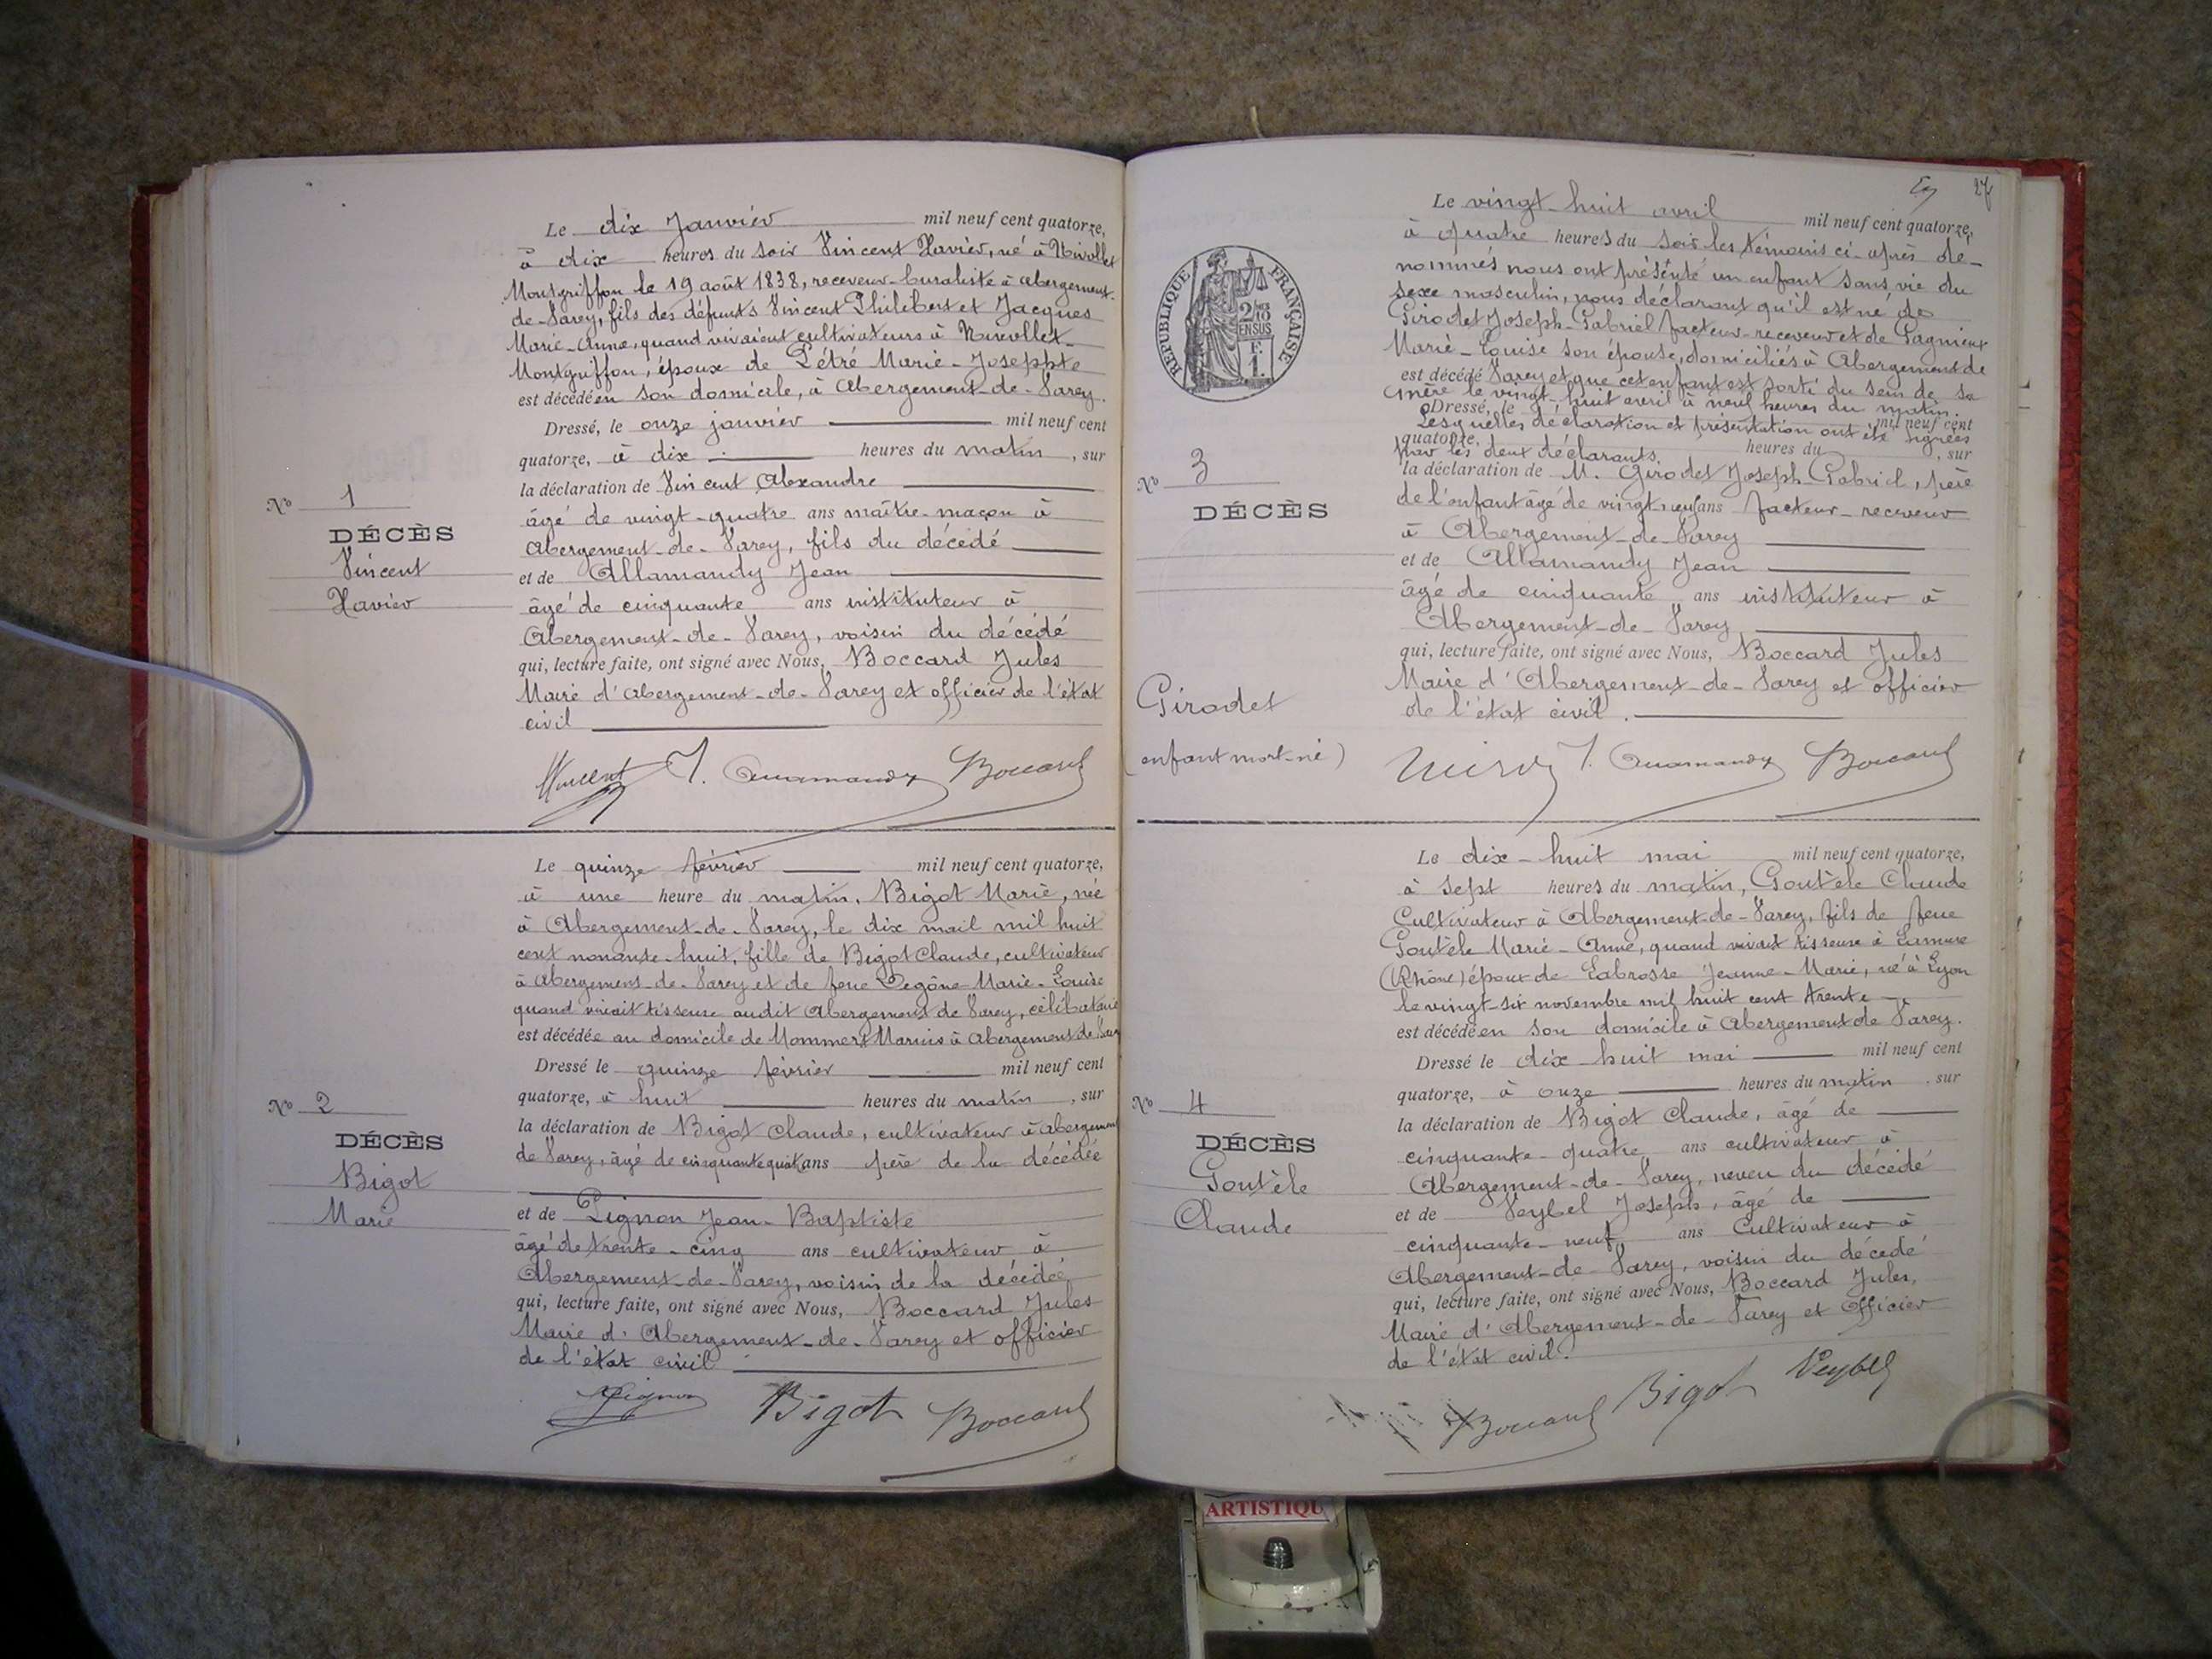 Le dix Janvier mil neuf cent quatorze,
à dix heures du soir Vincent Xavier, né à Nivollet
Montgriffon le 19 août 1838, receveur-buraliste à abergement-
de-Varey, fils des défunts Vincent Philibert et Jacques
Marie-Anne, quand vivaient cultivateurs à Nivollet-
Montgriffon, époux de Létré Marie-Josephte
est décédé en son domicile, à Abergement-de-Varey.
Dressé, le onze janvier mil neuf cent
quatorze, à dix heures du matin, sur
la déclaration de Vincent Alexandre
âgé de vingt-quatre ans maître-maçon à
Abergement-de-Varey, fils du décédé
et de Allamandy Jean
âgé de cinquante ans instituteur à
Abergement-de-Varey, voisin du décédé
qui, lecture faite, ont signé avec Nous, Boccard Jules
Maire d'Abergement-de-Varey et officier de l'état
civil
No 1
DÉCÈS
Vincent
Xavier
Vincent J. Allamandy Boccard
Le quinze février mil neuf cent quatorze,
à une heure du matin, Bigot Marie, née
à Abergement-de-Varey, le dix mail mil huit
cent nonante-huit, fille de Bigot Claude, cultivateur
à Abergement-de-Varey et de feue Degône Marie-Louise
quand vivait tisseuse audit Abergement de Varey, célibataire
est décédée au domicile de Mommert Marius à Abergement de Varey
Dressé le quinze février mil neuf cent
quatorze, à huit heures du matin, sur
la déclaration de Bigot Claude, cultivateur à Abergement
de Varey, âgé de cinquante quat. ans père de la décédée
et de Pignon Jean-Baptiste
âgé de trente-cinq ans cultivateur à
Abergement-de-Varey, voisin de la décédée
qui, lecture faite, ont signé avec Nous, Boccard Jules
Maire d'Abergement-de-Varey et officier
de l'état civil
No 2
DÉCÈS
Bigot
Marie
Pignon Bigot Boccard
27
RÉPUBLIQUE FRANÇAISE
Le vingt-huit avril mil neuf cent quatorze,
à quatre heures du soir les témoins ci-après dé-
nommés nous ont présenté un enfant sans vie du
sexe masculin, nous déclarant qu'il est né de
Girodet Joseph-Gabriel facteur-receveur et de Pagnieux
Marie-Louise son épouse, domiciliés à Abergement de
est décédé Varey et que cet enfant est sorti du sein de sa
mère le vingt-huit avril à neuf heures du matin.
Dressé, le mil neuf cent
Lesquelles déclaration et présentation ont été signées
quatorze, heures du, sur
par les deux déclarants.
la déclaration de M. Girodet Joseph Gabriel, père
de l'enfant âgé de vingt-neuf ans facteur-receveur
à Abergement-de-Varey
et de Allamandy Jean
âgé de cinquante ans instituteur à
Abergement-de-Varey
qui, lecture faite, ont signé avec Nous, Boccard Jules
Maire d'Abergement-de-Varey et officier
de l'état civil.
No 3
DÉCÈS
Girodet
(enfant mort-né)
J. Allamandy Boccard
Le dix-huit mai mil neuf cent quatorze,
à sept heures du matin, Goutèle Claude
Cultivateur à Abergement-de-Varey, fils de feue
Goutèle Marie-Anne, quand vivait tisseuse à Lamure
(Rhône) époux de Labrosse Jeanne-Marie, né à Lyon
le vingt-six novembre mil huit cent trente
est décédé en son domicile à Abergement de Varey.
Dressé le dix huit mai mil neuf cent
quatorze, à onze heures du matin, sur
la déclaration de Bigot Claude, âgé de
cinquante-quatre ans cultivateur à
Abergement-de-Varey, neveu du décédé
et de Veybel Joseph, âgé de
cinquante-neuf ans Cultivateur à
Abergement-de-Varey, voisin du décédé
qui, lecture faite, ont signé avec Nous, Boccard Jules,
Maire d'Abergement-de-Varey et Officier
de l'état civil.
No 4
DÉCÈS
Goutèle
Claude
Boccard Bigot Veybel
ARTISTIQU